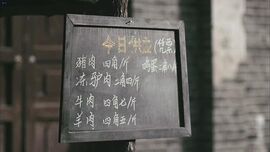 今日供应(凭票)
猪肉 四角/斤
冻驴肉 二角四/斤
牛肉 四角七/斤
羊肉 四角五/斤